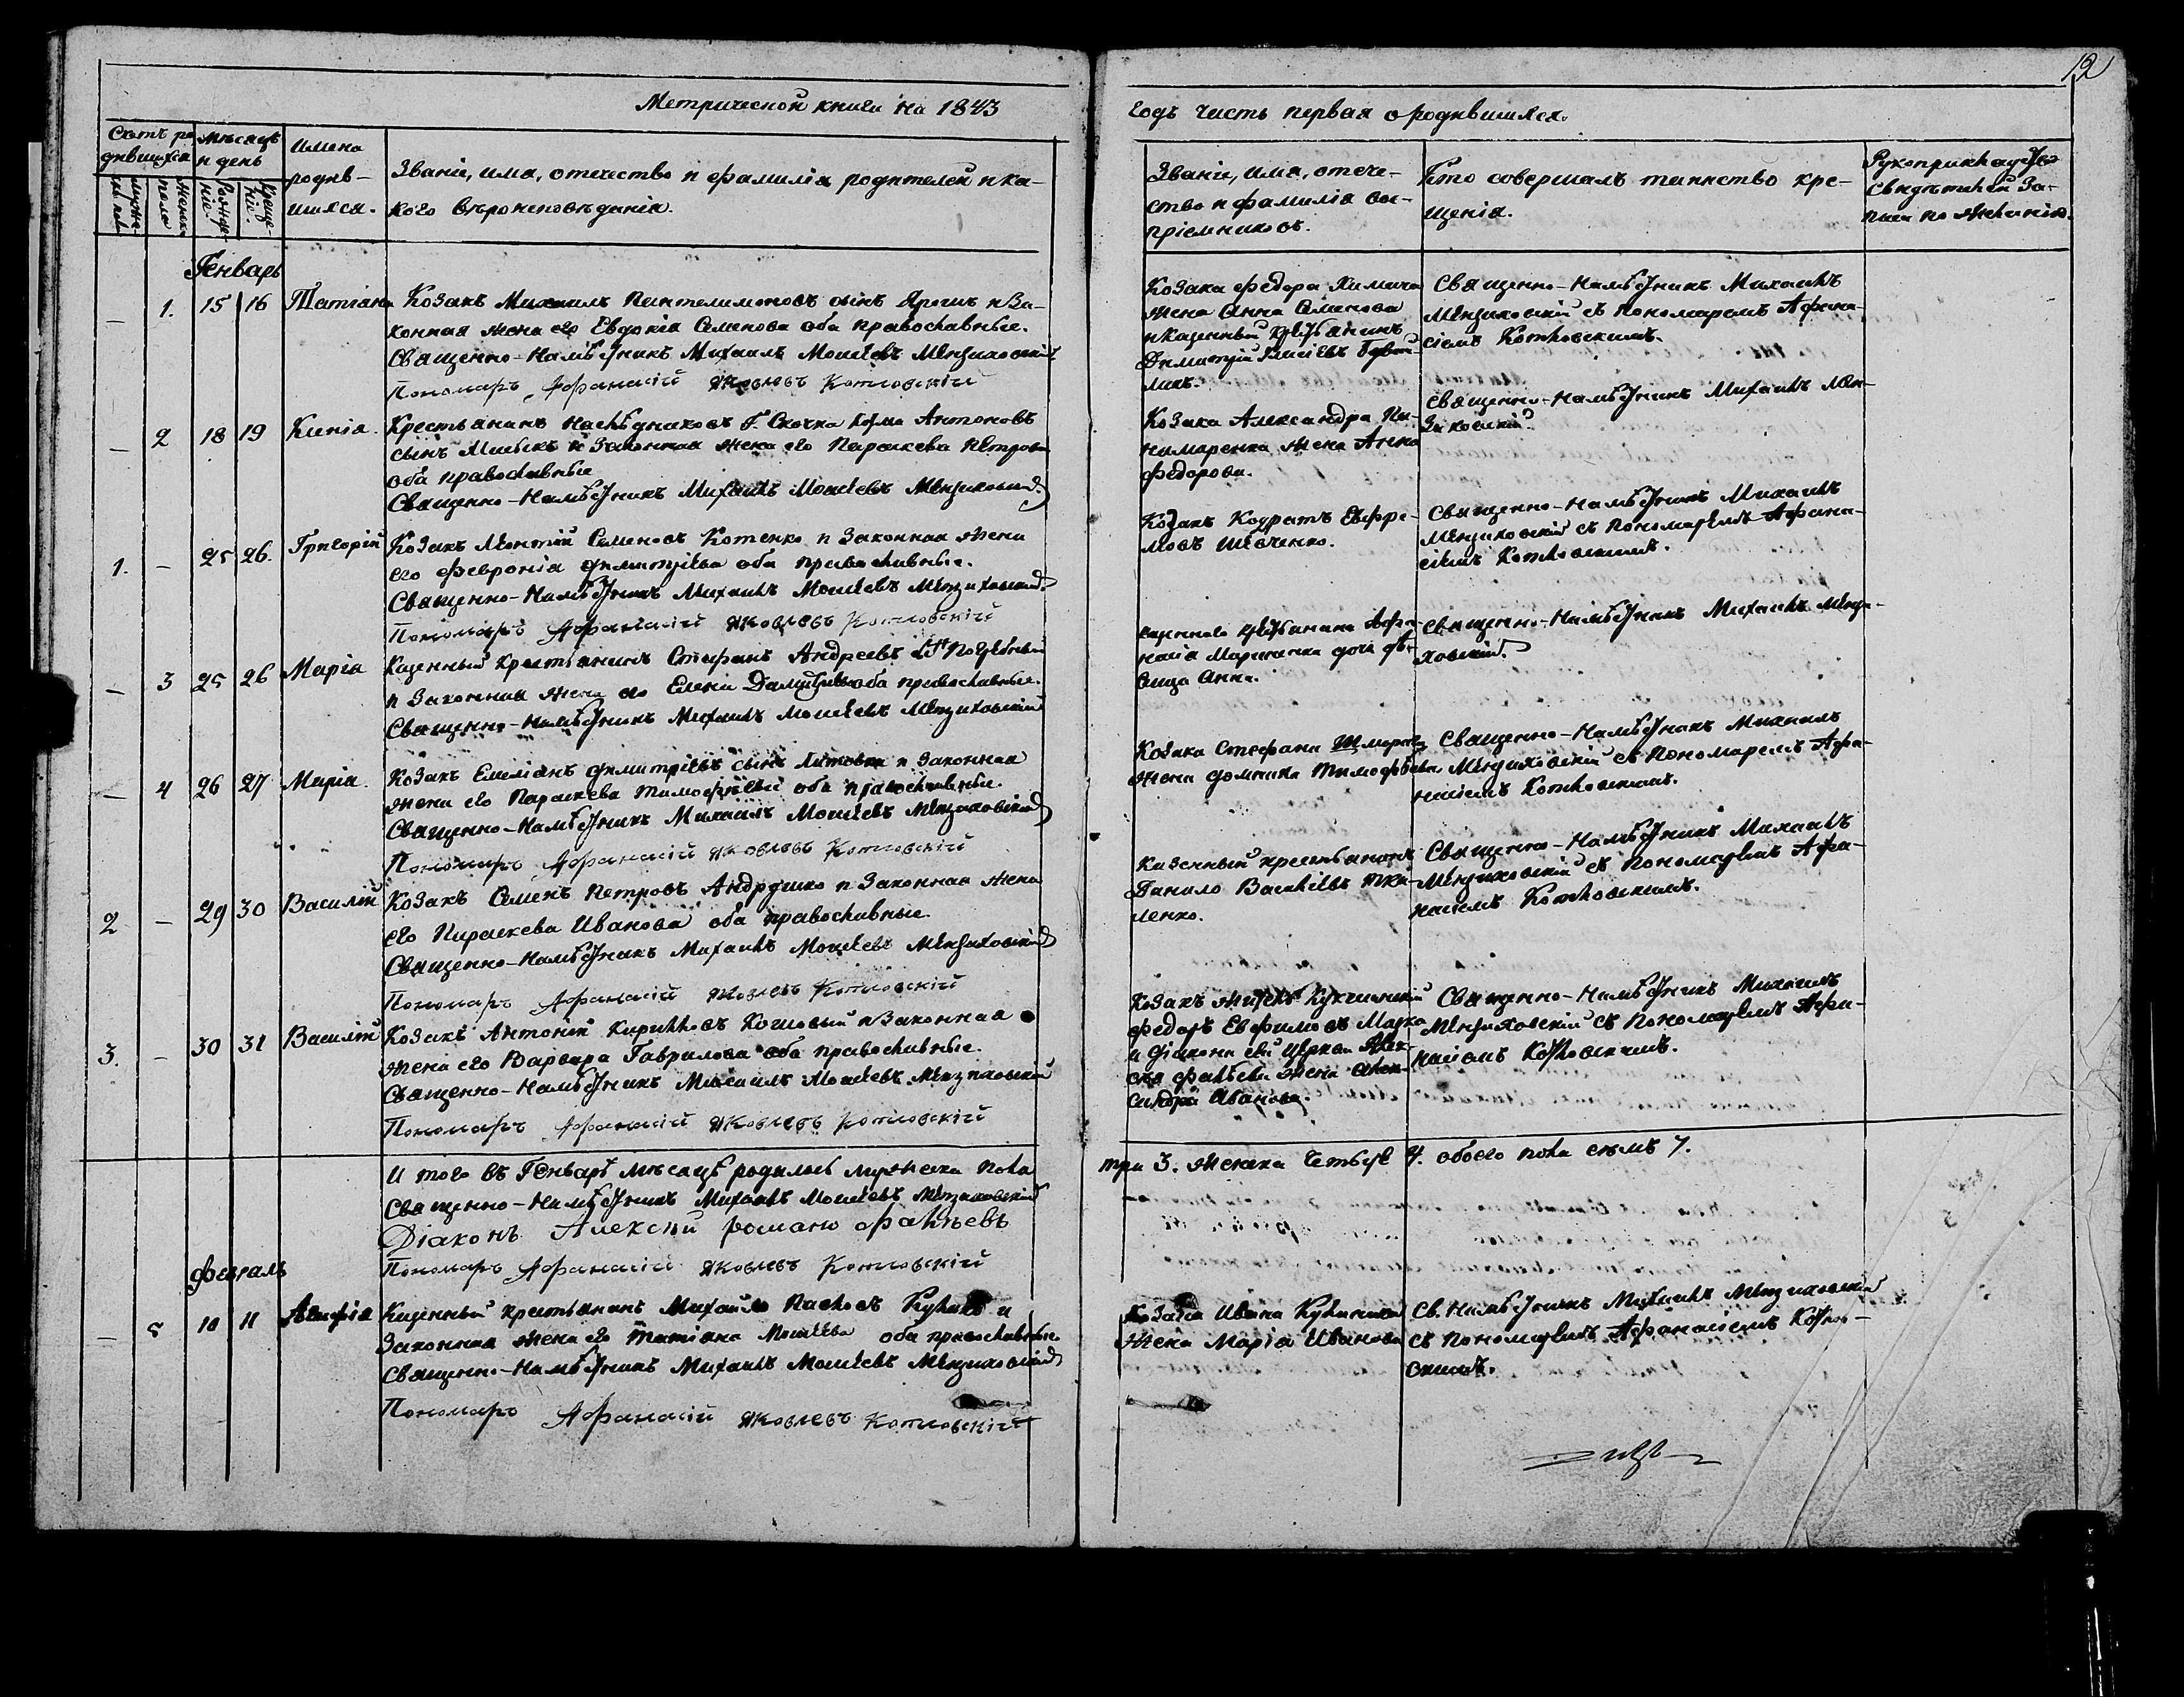 12
Метрической книги на 1843
годъ часть первая о родившихся.
Счетъ родившихся
Мѣсяцъ и день
Имена родив-
шихся.
Званіе, имя, отечество и фамилія родителей и ка-
кого вѣроисповѣданія.
Званіе, имя, отече-
ство и фамилія вос-
пріемниковъ.
Кто совершалъ таинство кре-
щенія.
Рукоприкладство
свидѣтелей за-
писи по желанію.
Генварь
1. 15 16 Татіана
Козакъ Михаилъ Пантелимоновъ сынъ и За-
конная жена его Евдокія Семенова оба православные.
Священно-Намѣстникъ Михаилъ Моисеевъ Мензиховскій
Пономарь Афанасій Яковлевъ Котловскій
Козака Федора жена Анна Семенова
и казенный крестьянинъ
Димитрій
Священно-Намѣстникъ Михаилъ
Мензиховскій съ Пономаремъ Афана-
сіемъ Котловскимъ.
2 18 19
Крестьянинъ Наслѣдниковъ Г. Скочка Козма Антоновъ
сынъ и Законная жена его Параскева Петрова
оба православные
Священно-Намѣстникъ Михаилъ Моисеевъ Мензиховскій
Козака Александра По-
номаренка жена Анна
Федорова.
Священно-Намѣстникъ Михаилъ Мен-
зиховскій
1. – 25 26. Григорій
Козакъ Леонтій Семеновъ Котенко и Законная жена
его Февронія Димитріева оба православные.
Священно-Намѣстникъ Михаилъ Моисеевъ Мензиховскій
Пономарь Афанасій Яковлевъ Котловскій
Козакъ Кодратъ Евфре-
мовъ Шевченко.
Священно-Намѣстникъ Михаилъ
Мензиховскій съ Пономаремъ Афана-
сіемъ Котловскимъ.
– 3 25 26 Марія
Казенный крестьянинъ Стефанъ Андреевъ
и Законная жена его Елена оба православные.
Священно-Намѣстникъ Михаилъ Моисеевъ Мензиховскій
Казеннаго крестьянина Афа-
насія дочь дѣ-
вица Анна.
Священно-Намѣстникъ Михаилъ Мензи-
ховскій
– 4 26 27 Марія.
Козакъ Емеліанъ Димитріевъ сынъ и Законная
жена его Параскева Тимофѣева оба православные.
Священно-Намѣстникъ Михаилъ Моисеевъ Мензиховскій
Пономарь Афанасій Яковлевъ Котловскій
Козака Стефана
жена Домника Тимофѣева.
Священно-Намѣстникъ Михаилъ
Мензиховскій съ Пономаремъ Афа-
насіемъ Котловскимъ.
2 – 29 30 Василій
Козакъ Семенъ Петровъ Андрушко и Законная жена
его Параскева Иванова оба православные.
Священно-Намѣстникъ Михаилъ Моисеевъ Мензиховскій
Пономарь Афанасій Яковлевъ Котловскій
Казенный крестьянинъ
Данило Васильевъ Тка-
ленко.
Священно-Намѣстникъ Михаилъ
Мензиховскій съ Пономаремъ Афа-
насіемъ Котловскимъ.
3. – 30 31 Василій
Козакъ Антоній Кирилловъ Кошовый и Законная
жена его Варвара Гаврилова оба православные.
Священно-Намѣстникъ Михаилъ Моисеевъ Мензиховскій
Пономарь Афанасій Яковлевъ Котловскій
Козакъ
Федоръ Евфимовъ
и діакона сей церкви Алек-
сѣя жена Алек-
сандра Иванова.
Священно-Намѣстникъ Михаилъ
Мензиховскій съ Пономаремъ Афа-
насіемъ Котловскимъ.
И того въ Генварѣ мѣсяцѣ родилось мужеска пола
три 3. женска четыре 4. обоего пола семь 7.
Священно-Намѣстникъ Михаилъ Моисеевъ Мензиховскій
Діаконъ Алексѣй
Пономарь Афанасій Яковлевъ Котловскій
Февраль
– 5 10 11 Агафія
Казенный крестьянинъ Михайло Павловъ и
Законная жена его Татіана Моисеева оба православные
Священно-Намѣстникъ Михаилъ Моисеевъ Мензиховскій
Пономарь Афанасій Яковлевъ Котловскій
Козака Ивана
жена Марія Иванова
Св. Намѣстникъ Михаилъ Мензиховскій
съ Пономаремъ Афанасіемъ Котлов-
скимъ.